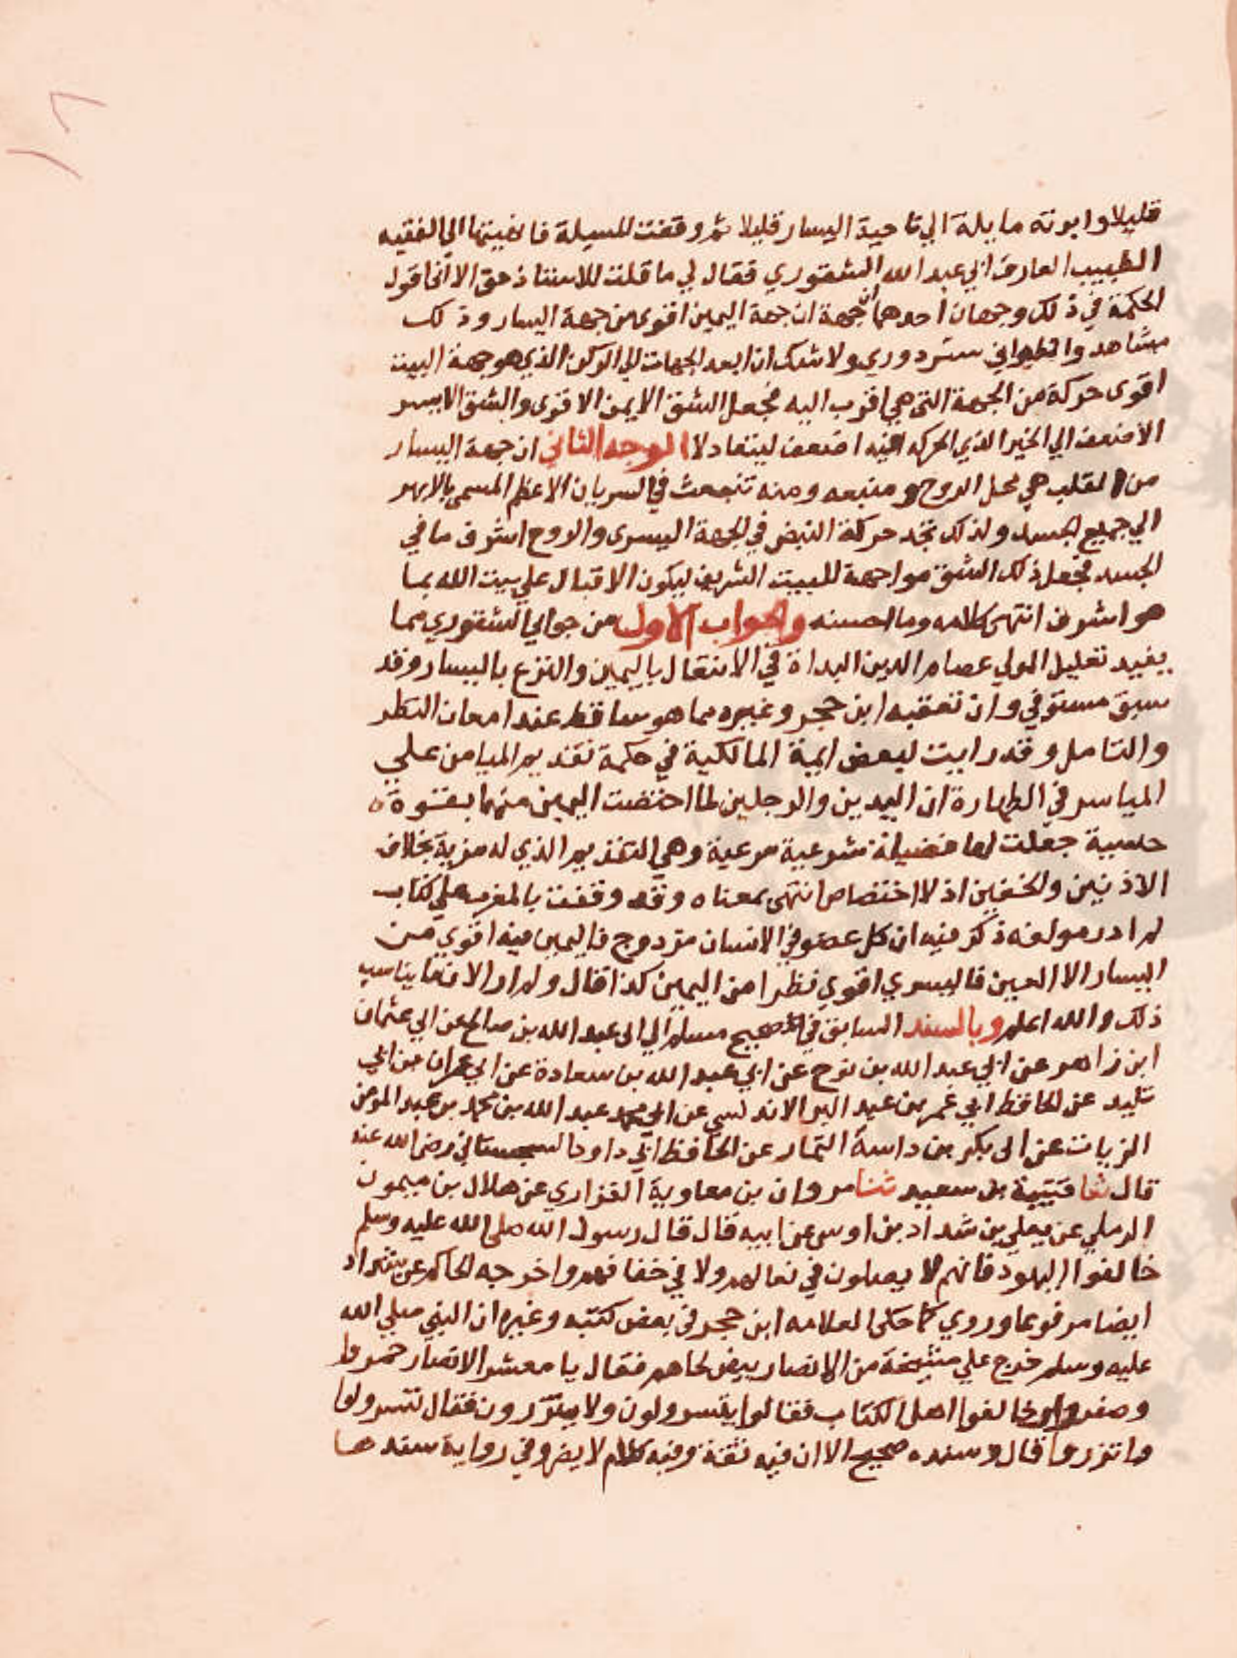 قليلا وابوته مايلة الي ناحية اليسار قليلا ثم وقفت للسيلة فانهيتها الي الفقيه
الطبيب العارف ابي عبد الله الشقوري فقال لي ما قلت للاستاذ حق الا انا اقول
الحكمة في ذلك وجهان احدهما ان جهة اليمين اقوي من جهة اليسار وذلك
مشاهد والطواف ستر دوري ولا شك ان ابعد الجهات الي الركن الذي هو جهة البيت
اقوى حركة من الجهة التي هي اقرب اليه فجعل الشق الايمن الاقوى والشق الايسر
الاضعف الي الخير الذي الحركه فيه اضعف ليتعادلا الوجه الثاني ان جهة اليسار
من القلب هي محل الروح و منبعه ومنه تنبعث في السريان الاعظم المسمى بالابهر
الي جميع الجسد ولذلك تجد حركة النبض في الجهة اليسرى والروح اشرف ما في
الجسد فجعل ذلك الشق مواجهة للبيت الشريف ليكون الاقبال علي بيت الله بما
هو اشرف انتهى كلامه وما احسنه والجواب الاول من جوابي الشقوري مما
يفيد تعليل المولي عصام الدين البداة في الانتعال باليمين والنزع باليسار وقد
سبق مستوفي وان تعقبه ابن حجر وغيره مما هو ساقط عند امعان النظر
والتامل وقد رايت لبعض ايمة المالكية في حكمة تقديم الميامن علي
المياسر في الطهارة ان اليدين والرجلين لما اختصت اليمين منهما بقوة
حسية جعلت لها فضيلة شرعية مرعية وهي التقديم الذي له مزية بخلاف
الاذنين والخفين اذ لا اختصاص انتهى بمعناه وقد وقفت بالمغرب علي كتاب
لم ادر مولفه ذكر فيه ان كل عضو في الانسان مزدوج فاليمين فيه اقوي من
اليسار الا العين فاليسري اقوي نظرا من اليمين كذا قال ولم ار الان ما يناسب
ذلك والله اعلم وبالسند السابق في صحيح مسلم الي ابي عبد الله بن صالح عن ابي عثمان
ابن زاهر عن ابي عبد الله بن نوح عن ابي عبد الله بن سعادة عن ابي عمران بن ابي
تليد عن الحافظ ابي عمر بن عبد البر الاندلسي عن ابي محمد عبد الله بن محمد بن عبد المومن
الزيات عن ابي بكر بن داسة التمار عن الحافظ ابي داود السجستاني رضي الله عنه
قال ثنا قتيبة بن سعيد ثنا مروان بن معاوية الفزاري عن هلال بن ميمون
الرملي عن يعلي بن شداد بن اوس عن ابيه قال قال رسول الله صلي الله عليه وسلم
خالفوا اليهود فانهم لا يصلون في نعالهم ولا في خفافهم واخرجه الحاكم عن شداد
ايضا مرفوعا وروي كما حكى العلامه ابن حجر في بعض كتبه وغيره ان النبي صلي الله
عليه وسلم خرج علي مشيخة من الانصار بيض لحاهم فقال يا معشر الانصار حمروا
وصفروا وخالفوا اهل الكتاب فقالوا يتسرولون ولا يتزرون فقال تسرولوا
واتزروا قال وسنده صحيح الا ان فيه ثقة وفيه كلام لا يضر وفي رواية سندها